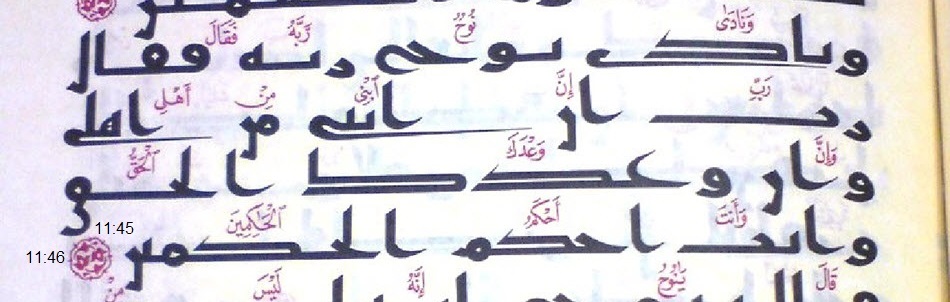 وَنَادَىٰ نُوحٌ رَّبَّهُ فَقَالَ
ونادى نوح ربه فقال
رَبِّ إِنَّ ٱبْنِى مِنْ أَهْلِى
رب ان ابنى من اهلى
وَإِنَّ وَعْدَكَ ٱلْحَقُّ
وان وعدك الحق
11:45
وَأَنتَ أَحْكَمُ ٱلْحَاكِمِينَ
وانت احكم الحكمين
11:46
قَالَ يَٰنُوحُ إِنَّهُ لَيْسَ مِنْ